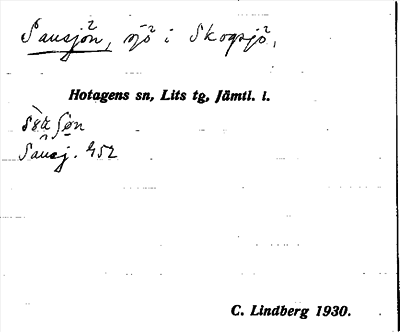 Sausjön, sjö i Skogsjö,
Hotagens sn, Lits tg, Jämtl. l.
Sausj. 452
C. Lindberg 1930.